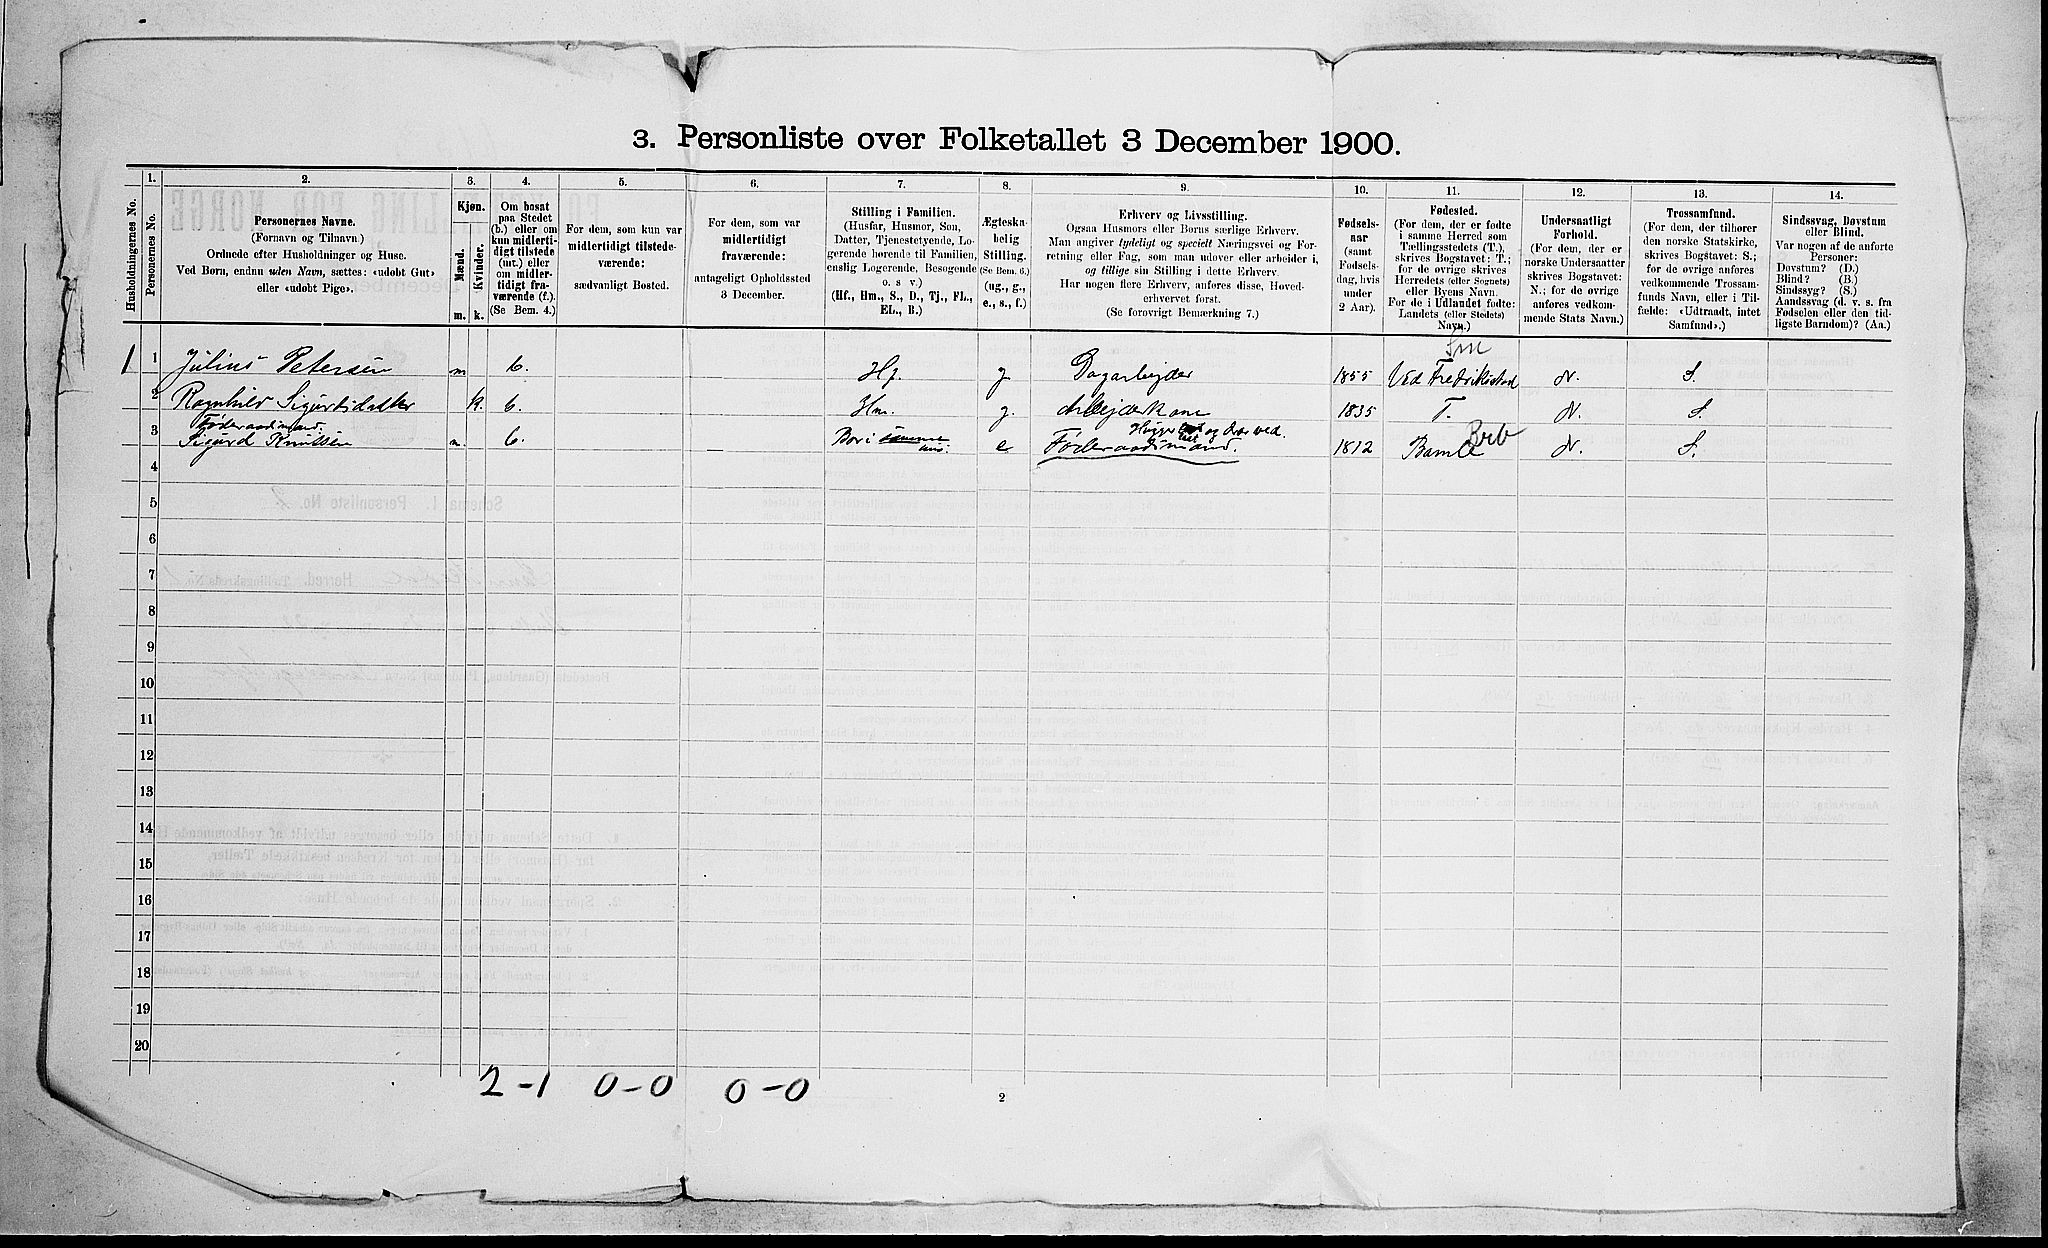 3. Personliste over Folketallet 3 December 1900.
Husholdningernes No.
1.
Personernes No.
2.
Personernes Navne.
(Fornavn og Tilnavn.)
Ordnede efter Husholdninger og Huse.
Ved Børn, endnu uden Navn, sættes: «udobt Gut»
eller «udobt Pige».
3.
Kjøn.
Mænd.
Kvinder.
m.
k.
4.
Om bosat
paa Stedet
(b.) eller om
kun midlerti-
digt tilstede
(mt.) eller
om midler-
tidigt fra-
værende (f.).
(Se Bem. 4.)
5.
For dem, som kun var
midlertidigt tilstede-
værende:
sædvanligt Bosted.
6.
For dem, som var
midlertidigt
fraværende:
antageligt Opholdssted
3 December.
7.
Stilling i Familien.
(Husfar, Husmor, Søn,
Datter, Tjenestetyende, Lo-
gerende hørende til Familien,
enslig Logerende, Besøgende
o. s v.)
(Hf., Hm., S., D., Tj., FL.,
EL., B.)
8.
Ægteska-
belig
Stilling.
(Se Bem. 6.)
(ug., g.,
e., s., f.)
9.
Erhverv og Livsstilling.
Ogsaa Husmors eller Børns særlige Erhverv.
Man angiver tydeligt og specielt Næringsvei og For-
retning eller Fag, som man udøver eller arbeider i,
og tillige sin Stilling i dette Erhverv.
Har nogen flere Erhverv, anføres disse, Hoved-
erhvervet først.
(Se forøvrigt Bemærkning 7.)
10.
Fødsels-
aar
(samt
Fødsels-
dag, hvis
under
2 Aar).
11.
Fødested.
(For dem, der er fødte
i samme Herred som
Tællingsstedets (T.),
skrives Bogstavet: T.;
for de øvrige skrives
Herredets (eller Sognets)
eller Byens Navn.
For de i Udlandet fødte:
Landets (eller Stedets)
Navn.)
12.
Undersaatligt
Forhold.
(For dem, der er
norske Undersaatter
skrives Bogstavet:
N.; for de øvrige
anføres vedkom-
mende Stats Navn.)
13.
Trossamfund.
(For dem, der tilhører
den norske Statskirke,
skrives Bogstavet: S.;
for de øvrige anføres
vedkommende Trossam-
funds Navn, eller i Til-
fælde: «Udtraadt, intet
Samfund».)
14.
Sindssvag, Døvstum
eller Blind.
Var nogen af de anførte
Personer:
Døvstum? (D.)
Blind? (B.)
Sindssyg? (S.)
Aandssvag (d. v. s. fra
Fødselen eller den tid-
ligste Barndom)? (Aa.)
1 1 Julius Petersen m b. Hf. g Dagarbejder 1855 Ved Fredrikstad N. S.
2 Ragnhild Sigurtsdatter k. b. Hm. g. Arbejderkone 1835 T. N. S.
Føderaadsmand.
3 Sigurd Knutsen m. b. Bor i samme hus. e Føderaadsmand. 1812 Bamle N. S.
4
5
6
7
8
9
10
11
12
13
14
15
16
17
18
19
20
2-1 0-0 0-0
2